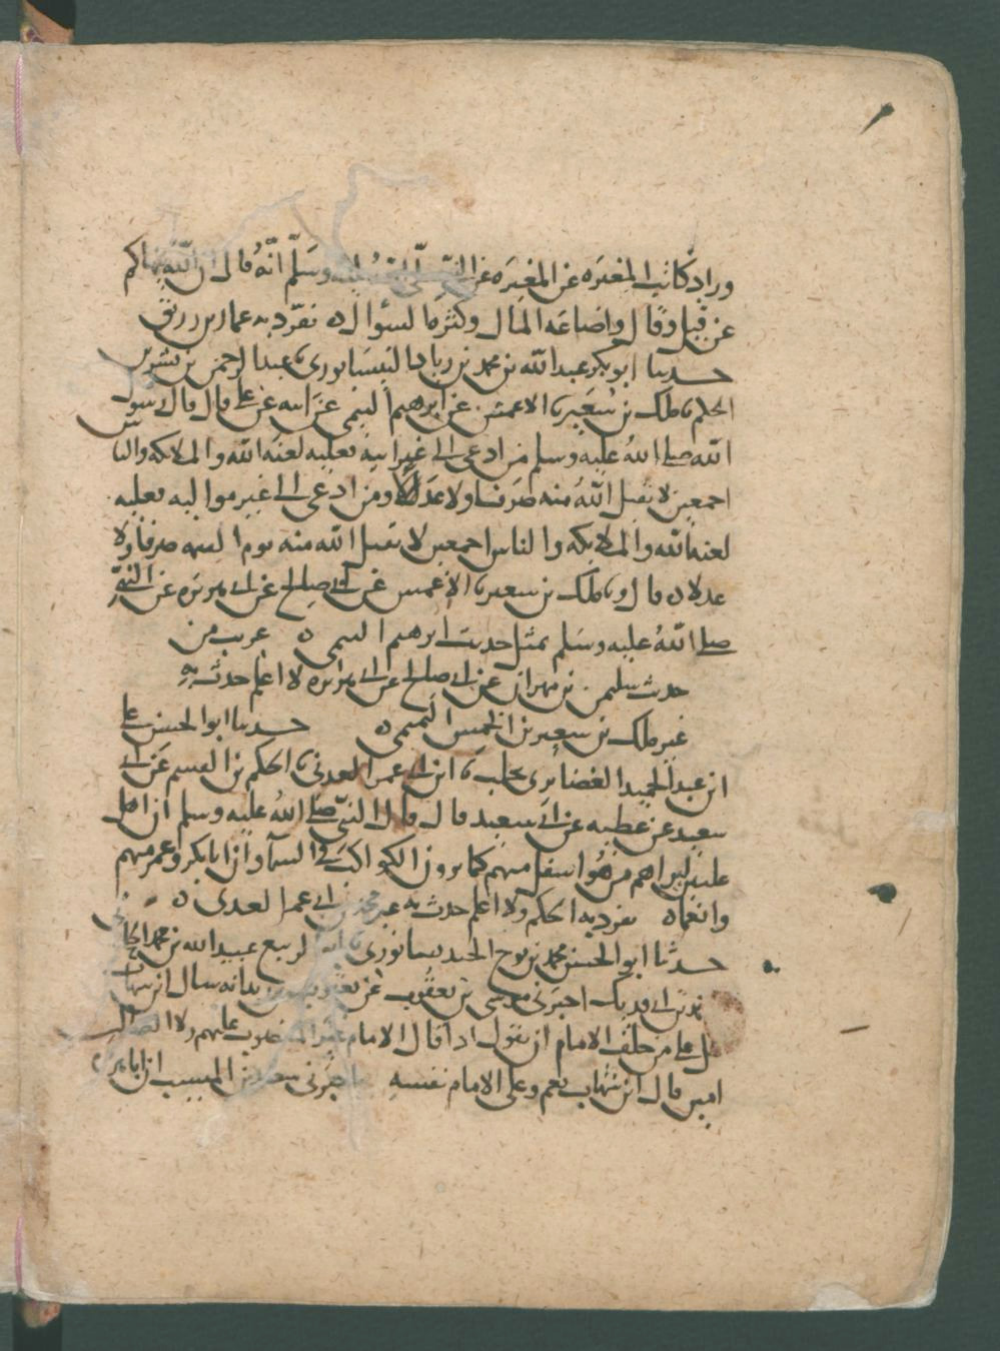 وراد كاتب المغيره عن المغيره عن النبي صلى الله عليه وسلم انه قال ان الله ينهاكم
عن قيل وقال واضاعه المال وكثره السؤال ه تفرد به عمار بن رزيق
حدثنا ابو بكر عبد الله بن محمد بن زياد النيسابوري نا عبد الرحمن بن بشر بن
الحكم نا ملك بن سعير نا الاعمش عن ابرهيم التيمي عن ابيه عن علي قال قال رسول
الله صلى الله عليه وسلم من ادعى الى غير ابيه فعليه لعنه الله والملائكه والناس
اجمعين لا يقبل الله منه صرفا ولا عدلا ومن ادعى الى غير مواليه فعليه
لعنه الله والملائكه والناس اجمعين لا يقبل الله منه يوم القيمه صرفا ولا
عدلا ه قال ونا ملك بن سعير نا الاعمش عن ابي صالح عن ابي هريره عن النبي
صلى الله عليه وسلم بمثل حديث ابرهيم التيمي ه غريب من
حديث سليمن بن مهران عن ابي صالح عن ابي هريره لا اعلم حدث به
غير ملك بن سعير بن الخمس التميمي ه حدثنا ابو الحسن علي
ابن عبد الحميد الغضائري بحلب نا ابن ابي عمر العدني نا الحكم بن القسم عن ابي
سعيد عن عطيه عن ابي سعيد قال قال النبي صلى الله عليه وسلم ان اهل
عليين ليراهم من هو اسفل منهم كما يرون الكواكب في السما وان ابا بكر وعمر منهم
وانعما ه تفرد به الحكم ولا اعلم حدث به غير محمد بن ابي عمر العدني ه
حدثنا ابو الحسن محمد بن نوح الجنديسابوري نا ابو الربيع عبيد الله بن محمد الحارثي
نا ابن ابي فديك اخبرني موسى بن يعقوب عن يعقوب بن انه سال ابن شهاب
هل على من خلف الامام ان يقول اذا قال الامام غير المغضوب عليهم ولا الضالين
امين قال ابن شهاب نعم وعلى الامام نفسه اخبرني سعيد بن المسيب ان ابا هريره